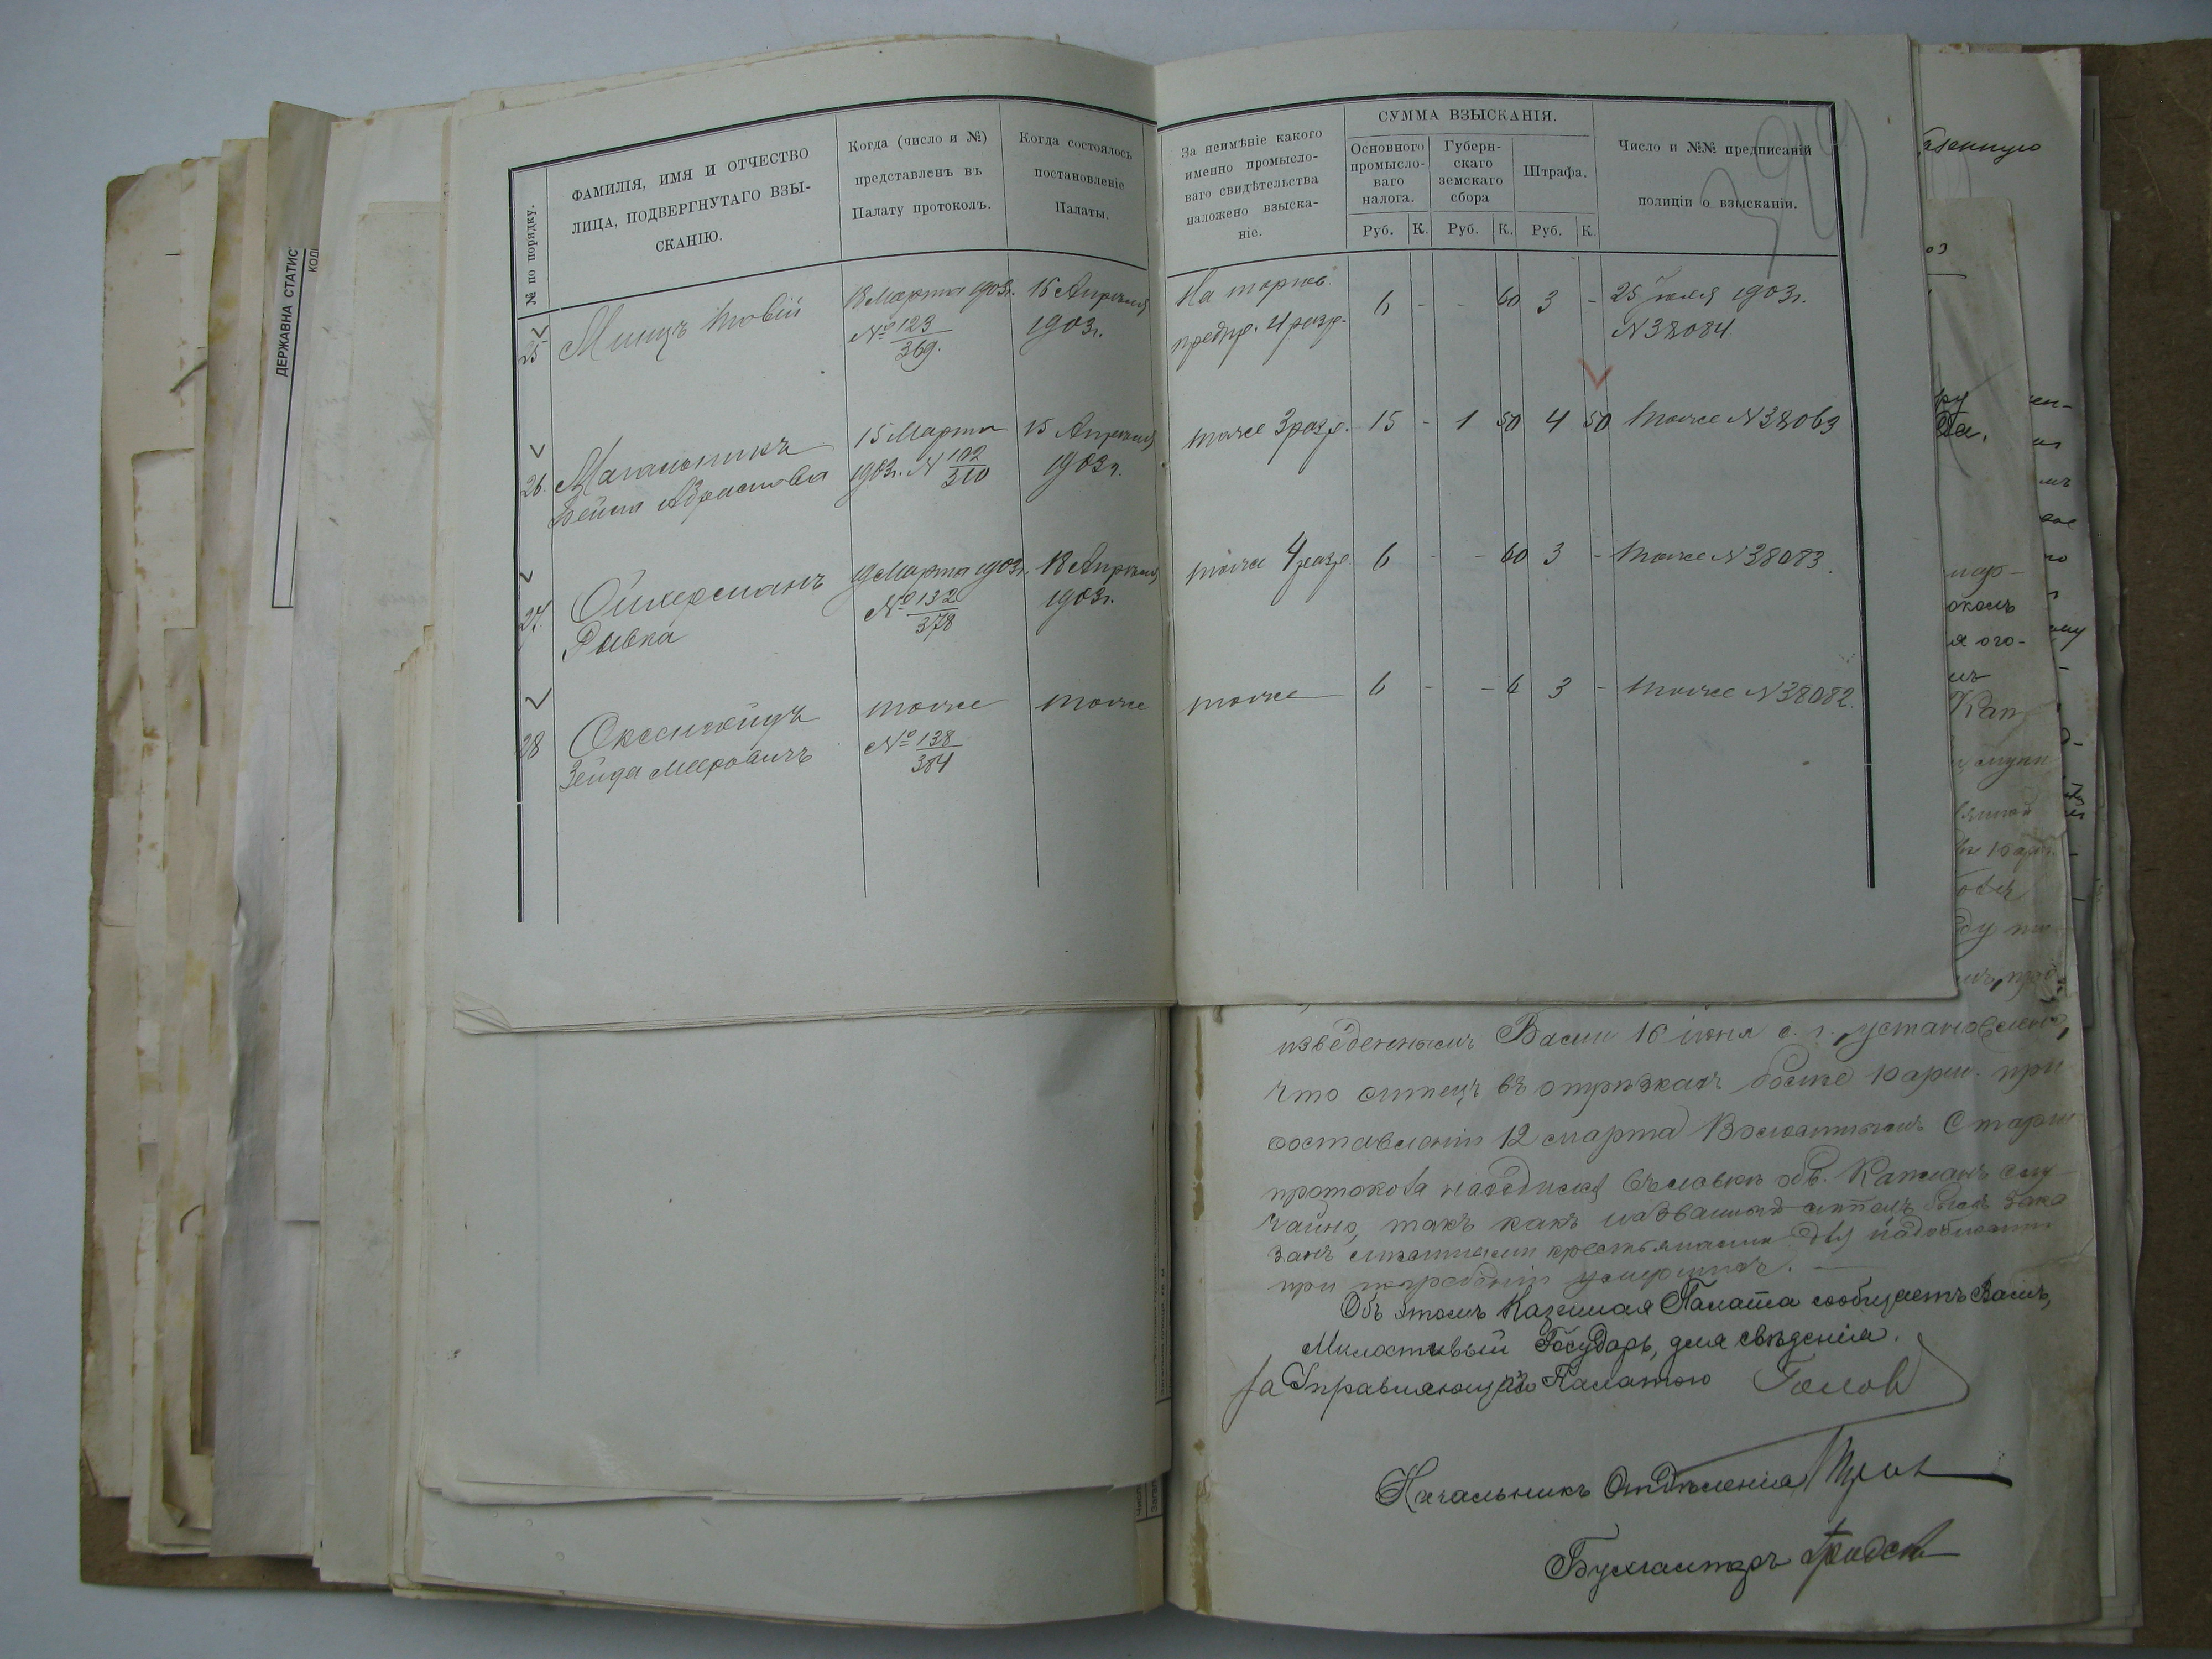 ДЕРЖАВНА СТАТИС
КОД
№ по порядку.
ФАМИЛІЯ, ИМЯ И ОТЧЕСТВО
ЛИЦА, ПОДВЕРГНУТАГО ВЗЫ-
СКАНІЮ.
Когда (число и №)
представленъ въ
Палату протоколъ.
Когда состоялось
постановленіе
Палаты.
За неимѣніе какого
именно промысло-
ваго свидѣтельства
наложено взыска-
ніе.
СУММА ВЗЫСКАНІЯ.
Основного
промысло-
ваго
налога.
Губерн-
скаго
земскаго
сбора
Штрафа.
Руб. К. Руб. К. Руб. К.
Число и №№ предписаній
полиціи о взысканіи.
25 Минцъ Товій
18 Марта 1903г.
№ 123
369.
16 Апрѣля
1903г.
На торгов.
предпр. 4 разр.
6 - - 60 3 -
25 Іюля 1903г.
N38084
26. Магальникъ
Бейла Абрамова
15 Марта
1903г. N 102
310
15 Апрѣля
1903г.
тоже 3 разр.
15 - 1 50 4 50
тоже N38063
27. Ойхерманъ
Рывка
19 Марта 1903г.
№ 132
378
18 Апрѣля
1903г.
тоже 4 разр.
6 - - 60 3 -
тоже N38083.
28
Зейда Мееровичъ
тоже
№ 138
384
тоже
тоже
6 - - 6 3 -
тоже N38082.
изведеннымъ Вами 16 іюня с. г. установлено,
что ситецъ въ отрѣзкахъ болѣе 10 арш. при
составленіи 12 марта Волостнымъ Старш
протокола находился въ лавкѣ об. Капланъ слу-
чайно, такъ какъ названный ситецъ былъ зака
занъ мѣстными крестьянами для надобности
при погребеніи умершихъ.
Объ этомъ Казенная Палата сообщаетъ Вамъ,
Милостивый Государь, для свѣдѣнія.
За Управляющаго Палатою
Начальникъ Отдѣленія
Бухгалтеръ